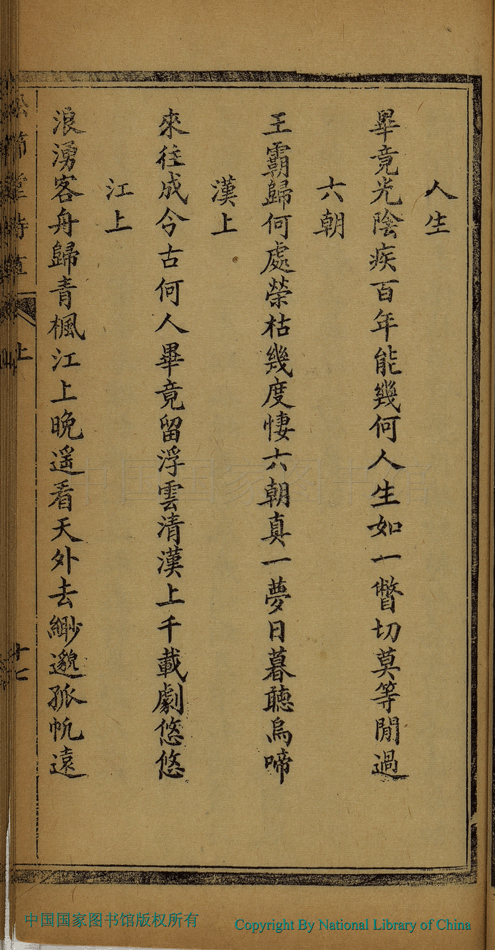 人生
畢竟光陰疾百年能幾何人生如一瞥切莫等閒過
六朝
王霸歸何處榮枯幾度悽六朝真一夢日暮聽烏啼
漢上
來往成今古何人畢竟留浮雲清漢上千載劇悠悠
江上
浪湧客舟歸青楓江上晚遥看天外去緲邈孤帆遠
堂詩草
上
十七
中国国家图书馆版权所有
Copyright By National Library of China